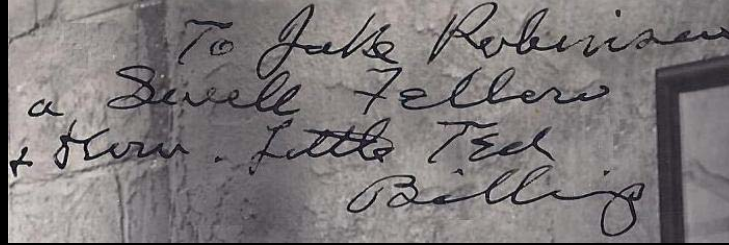 To Jake Robinson
a Swell Fellow
& How. Little Ted
Billing